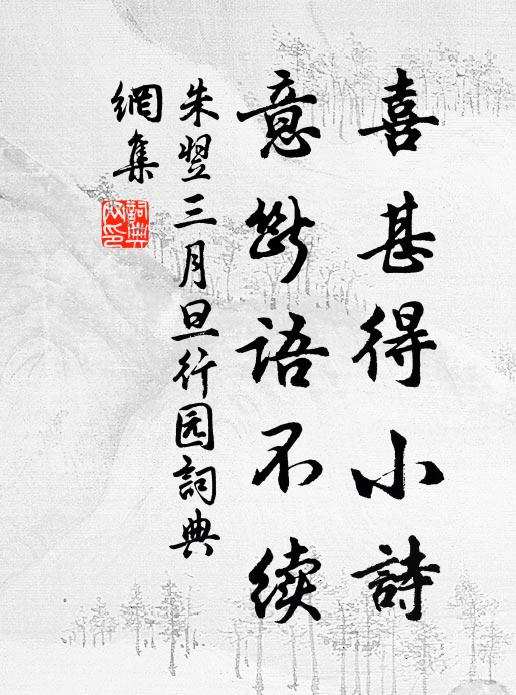 喜甚得小詩
意斷語不续
朱翌三月旦行园詞典
網集
詞典
网印